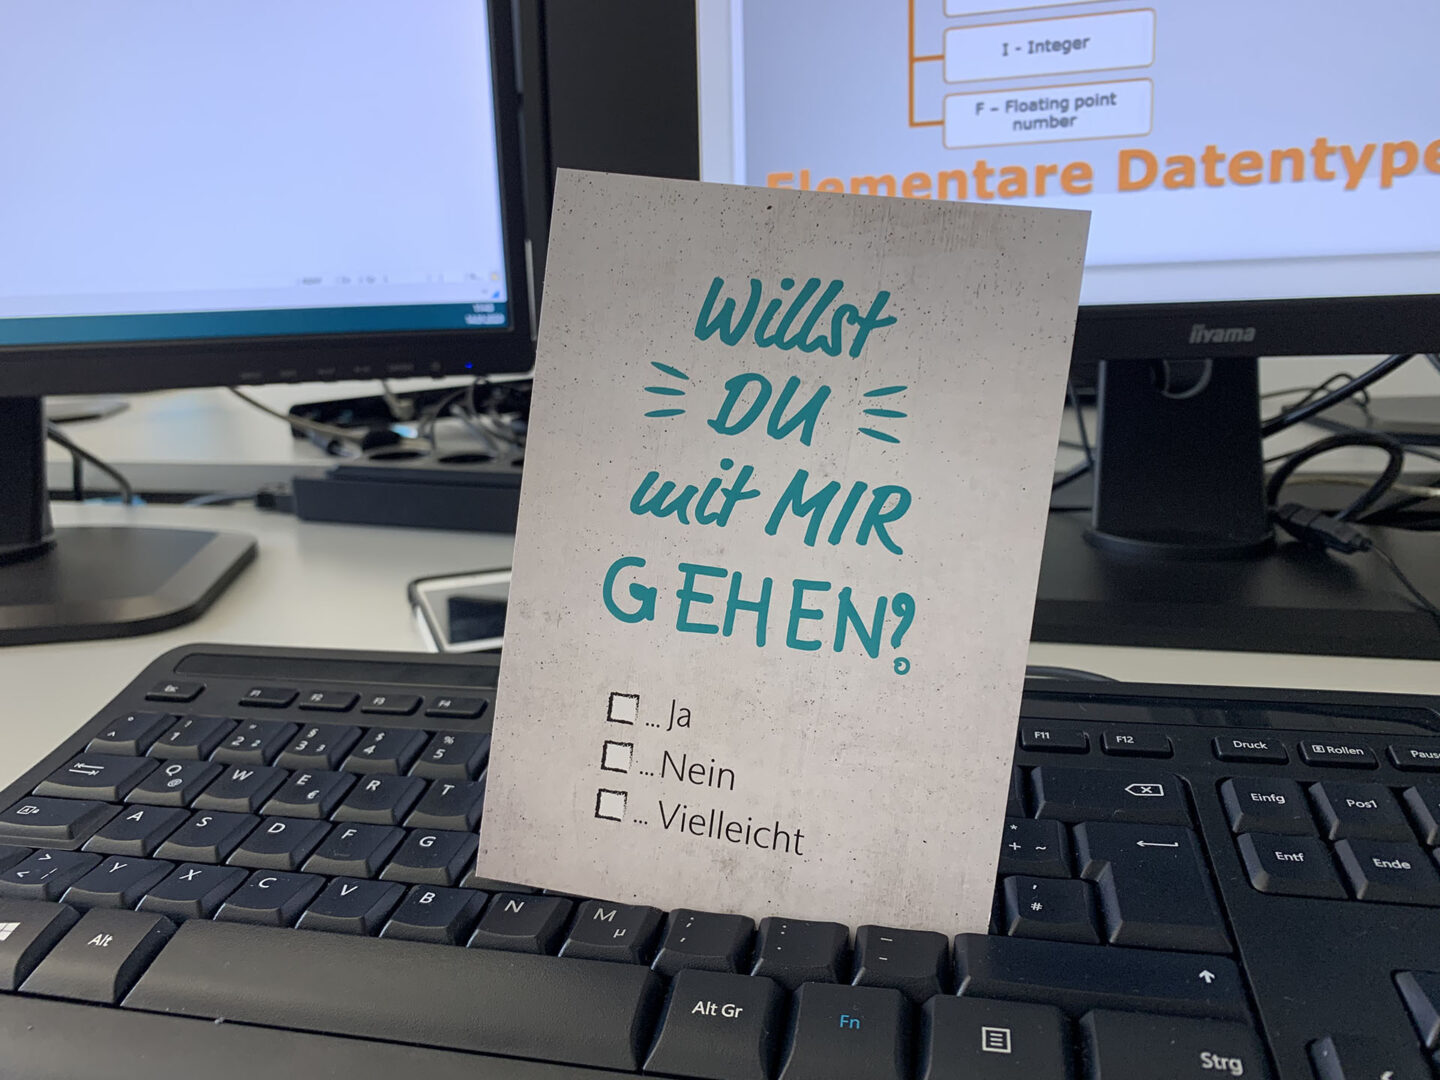 I - Integer
F – Floating point
number
Elementare Datentype
iiyama
Willst
DU
mit MIR
GEHEN?
... Ja
... Nein
... Vielleicht
Esc F1 F2 F3 F4 F11 F12 Druck Rollen Pause
° ^ ! 1 " 2 ² § 3 ³ $ 4 % 5
Q @ W E € R T Einfg Pos1
A S D F G * + ~ Entf Ende
> < | Y X C V B N M µ ; , : . _ - ' #
Alt Alt Gr Fn Strg